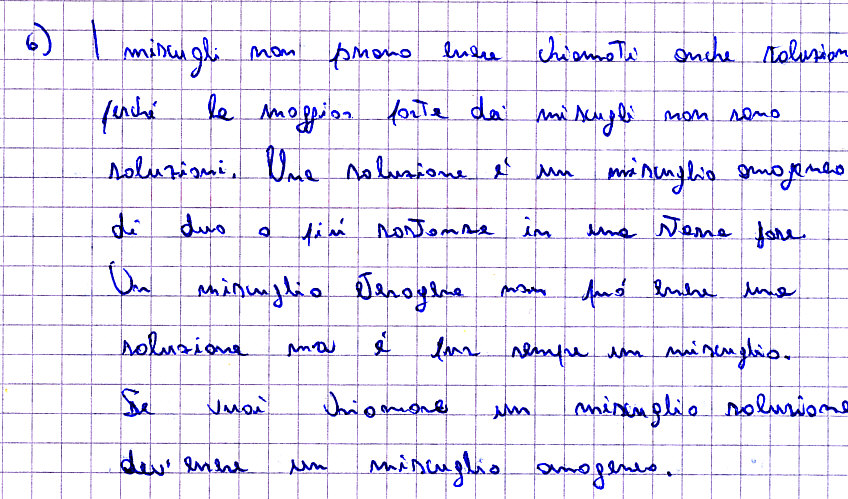 6) I miscugli non posono essere chiamati anche soluzioni
perché la maggior parte dei miscugli non sono
soluzioni. Una soluzione é un miscuglio omogeneo
di due o piú sostanze in una stessa fase.
Un miscuglio eterogeneo non puó essere una
soluzione ma é pur sempre un miscuglio.
Se vuoi chiamare un miscuglio soluzione
dev'essere un miscuglio omogeneo.